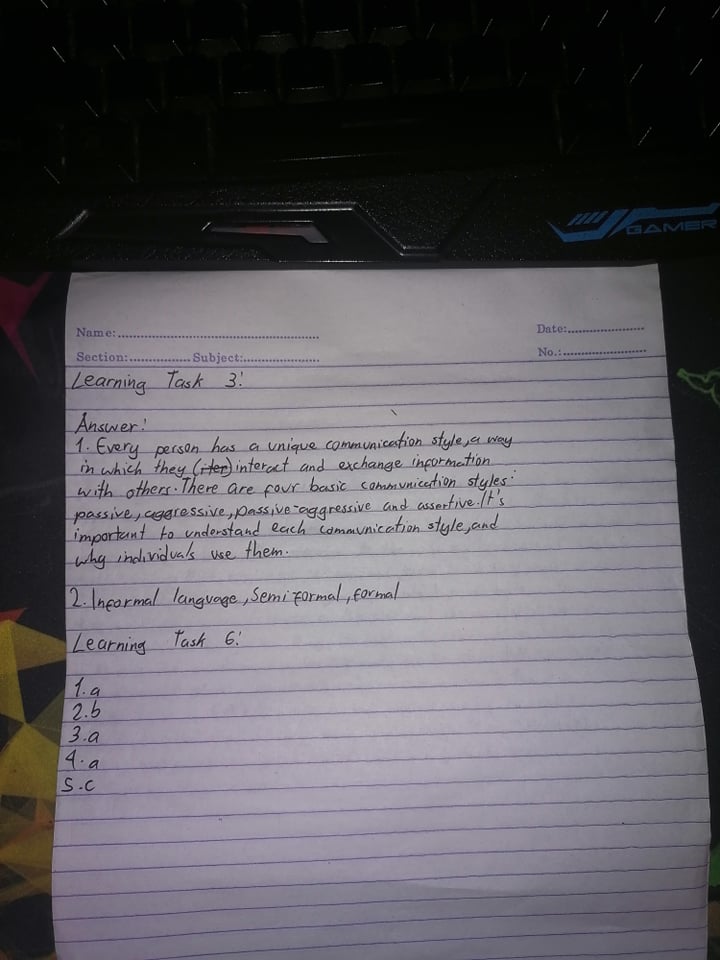 GAMER
Name:
Date:
Section: Subject:
No.:
Learning Task 3:
Answer:
1. Every person has a unique communication style, a way
in which they (iter) interact and exchange information
with others. There are four basic communication styles:
passive, aggressive, passive-aggressive and assertive. It's
important to understand each communication style, and
why individuals use them.
2. Informal language, Semi formal, formal
Learning Task 6:
1. a
2. b
3. a
4. a
5. c